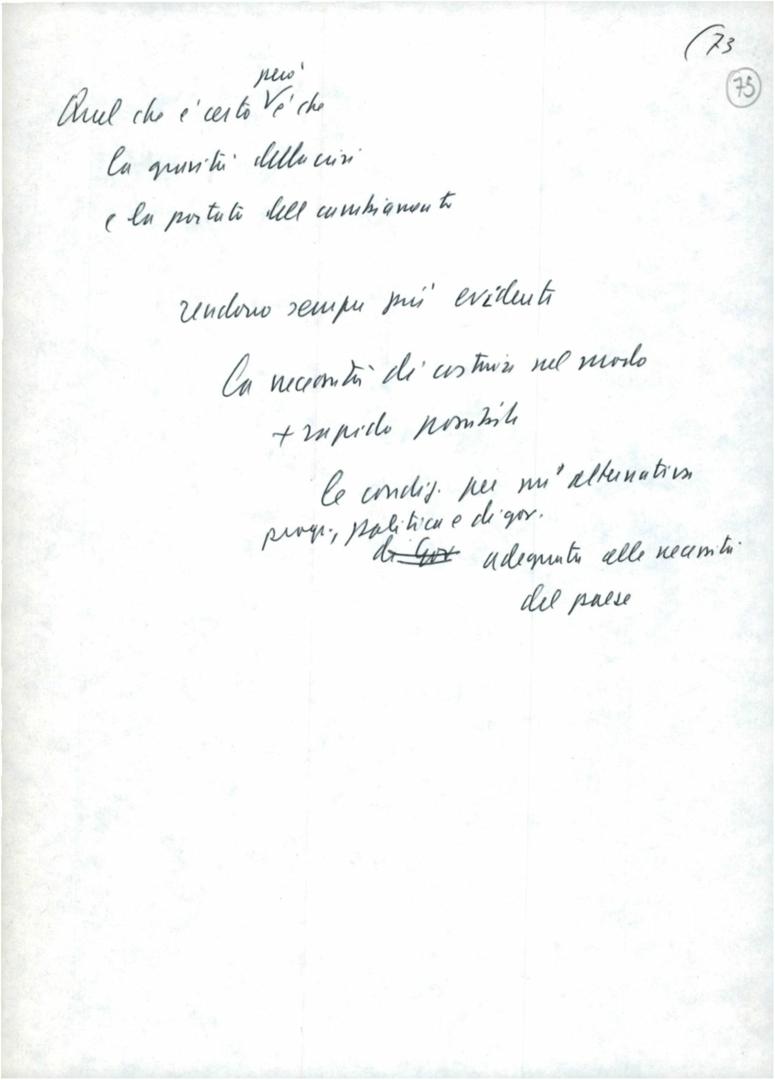 (73
75
però
Quel che è certo è che
la gravità della crisi
e la portata del cambiamento
rendono sempre più evidente
la necessità di costruire nel modo
+ rapido possibile
le condiz. per un'alternativa
progr., politica e di gov.
di Gov adeguata alle necessità
del paese